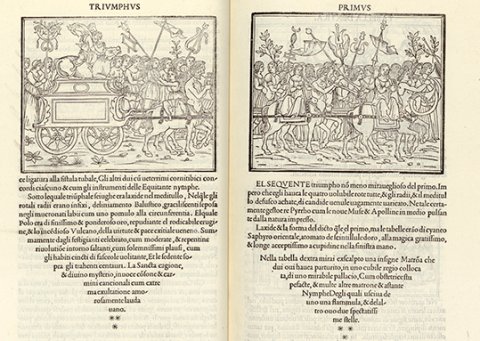 TRIVMPHVS
ce ligatura alla fistula tubale, Gli altri dui cũ ueterrimi cornitibici con
cordi ciascuno & cum gli instrumenti delle Equitante nymphe.
Sotto lequale triũphale seiughe era laxide nel meditullo, Nelqle gli
rotali radii erano infixi, deliniamento Balustico, graciliscenti seposa
negli mucronati labii cum uno pomulo alla circunferentia. Elquale
Polo era di finissimo & ponderoso oro, repudiante el rodicabile erugi-
ne, & lo incédioso Vulcano, della uirtute & pace exitiale ueneno. Sum-
mamente dagli festigianti celebrato, cum moderate, & repentine
riuolutiõe intorno saltanti, cum solemnissimi plausi, cum
gli habiti cincti di fasceole uolitante, Et le sedente so-
pra gli trahenti centauri. La Sancta cagione,
& diuino mysterio, in uoce cõsone & car-
mini cancionali cum extre
ma exultatione amo-
rosamente lauda
uano.
PRIMVS
EL SEQVENTE triumpho nõ meno mirauegliosο del primo. Im
pero che egli hauea le quatro uolubile rote tutte, & gli radii, & il meditul
lo defusco achate, di candide uenule uagamente uaricato. Netale certa-
mente gestoe re Pyrrho cum le noue Muse & Apolline in medio pulsan
te dalla natura impresso.
Laxide & la forma del dicto q̃le el primo, ma le tabelle erão di cyaneo
Saphyro orientale, atomato de scintillule doro, alla magica gratissimo,
& longe acceptissimo a cupidine nella sinistra mano.
Nella tabella dextra mirai exscalpto una insigne Matrõa che
dui oui hauea parturito, in uno cubile regio colloca
ta, di uno mirabile pallacio, Cum obstetrice stu
pefacte, & multe altre matrone & astante
Nymphe Degli quali usciua de
uno una flammula, & delal-
tro ouo due spectatissi
me stelle.